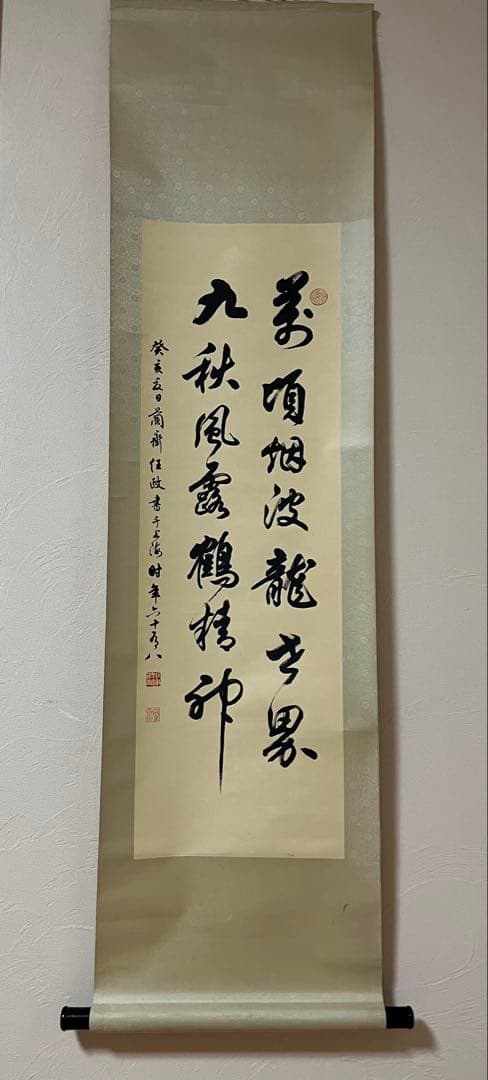 萬頃烟波龍世界
九秋風露鶴精神
癸亥夏日蘭齋任政書于上海时年六十有八